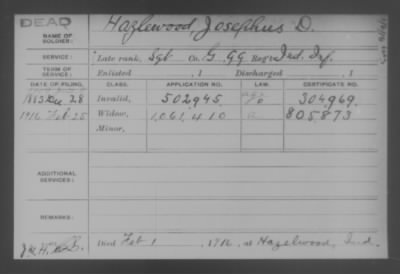 DEAD
NAME OF SOLDIER: Hazlewood, Josephus D.
SERVICE: Late rank, Sgt Co. G, 99 Reg't Ind. Inf.
TERM OF SERVICE: Enlisted , 1 Discharged , 1
DATE OF FILING. CLASS. APPLICATION NO. LAW. CERTIFICATE NO.
1883 Dec 28 Invalid, 502,945. 304,969.
1916 Feb 25 Widow, 1,061,410 805,873
Minor,
ADDITIONAL SERVICES:
REMARKS:
Died Feb 1, 1916, at Hazelwood, Ind.